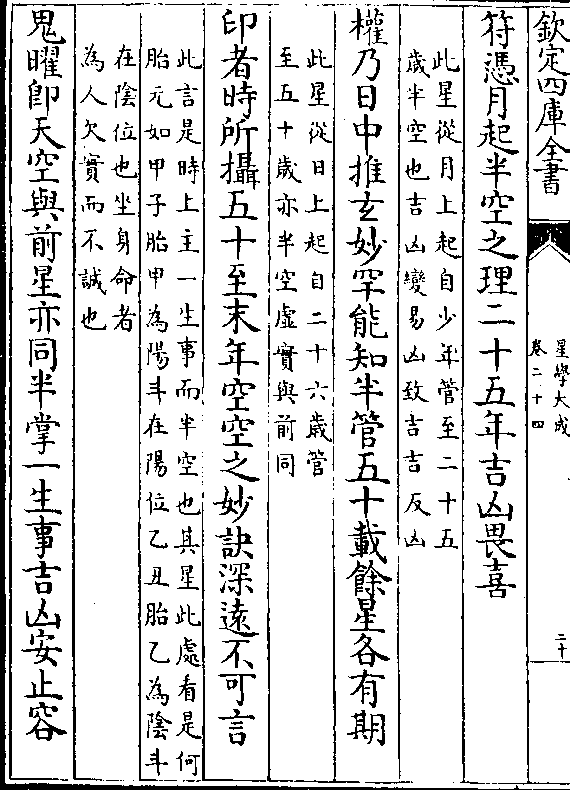 欽定四庫全書
星學大成
卷二十四
二十
符憑月起半空之理二十五年吉凶畏喜
此星從月上起自少年管至二十五
歲半空也吉凶變易凶致吉吉反凶
權乃日中推玄妙罕能知半管五十載餘星各有期
此星從日上起自二十六歲管
至五十歲亦半空虛實與前同
印者時所攝五十至末年空空之妙訣深遠不可言
此言是時上主一生事而半空也其星此處看是何
胎元如甲子胎甲為陽斗在陽位乙丑胎乙為陰斗
在陰位也坐身命者
為人欠實而不誠也
鬼曜卽天空與前星亦同半掌一生事吉凶安止容